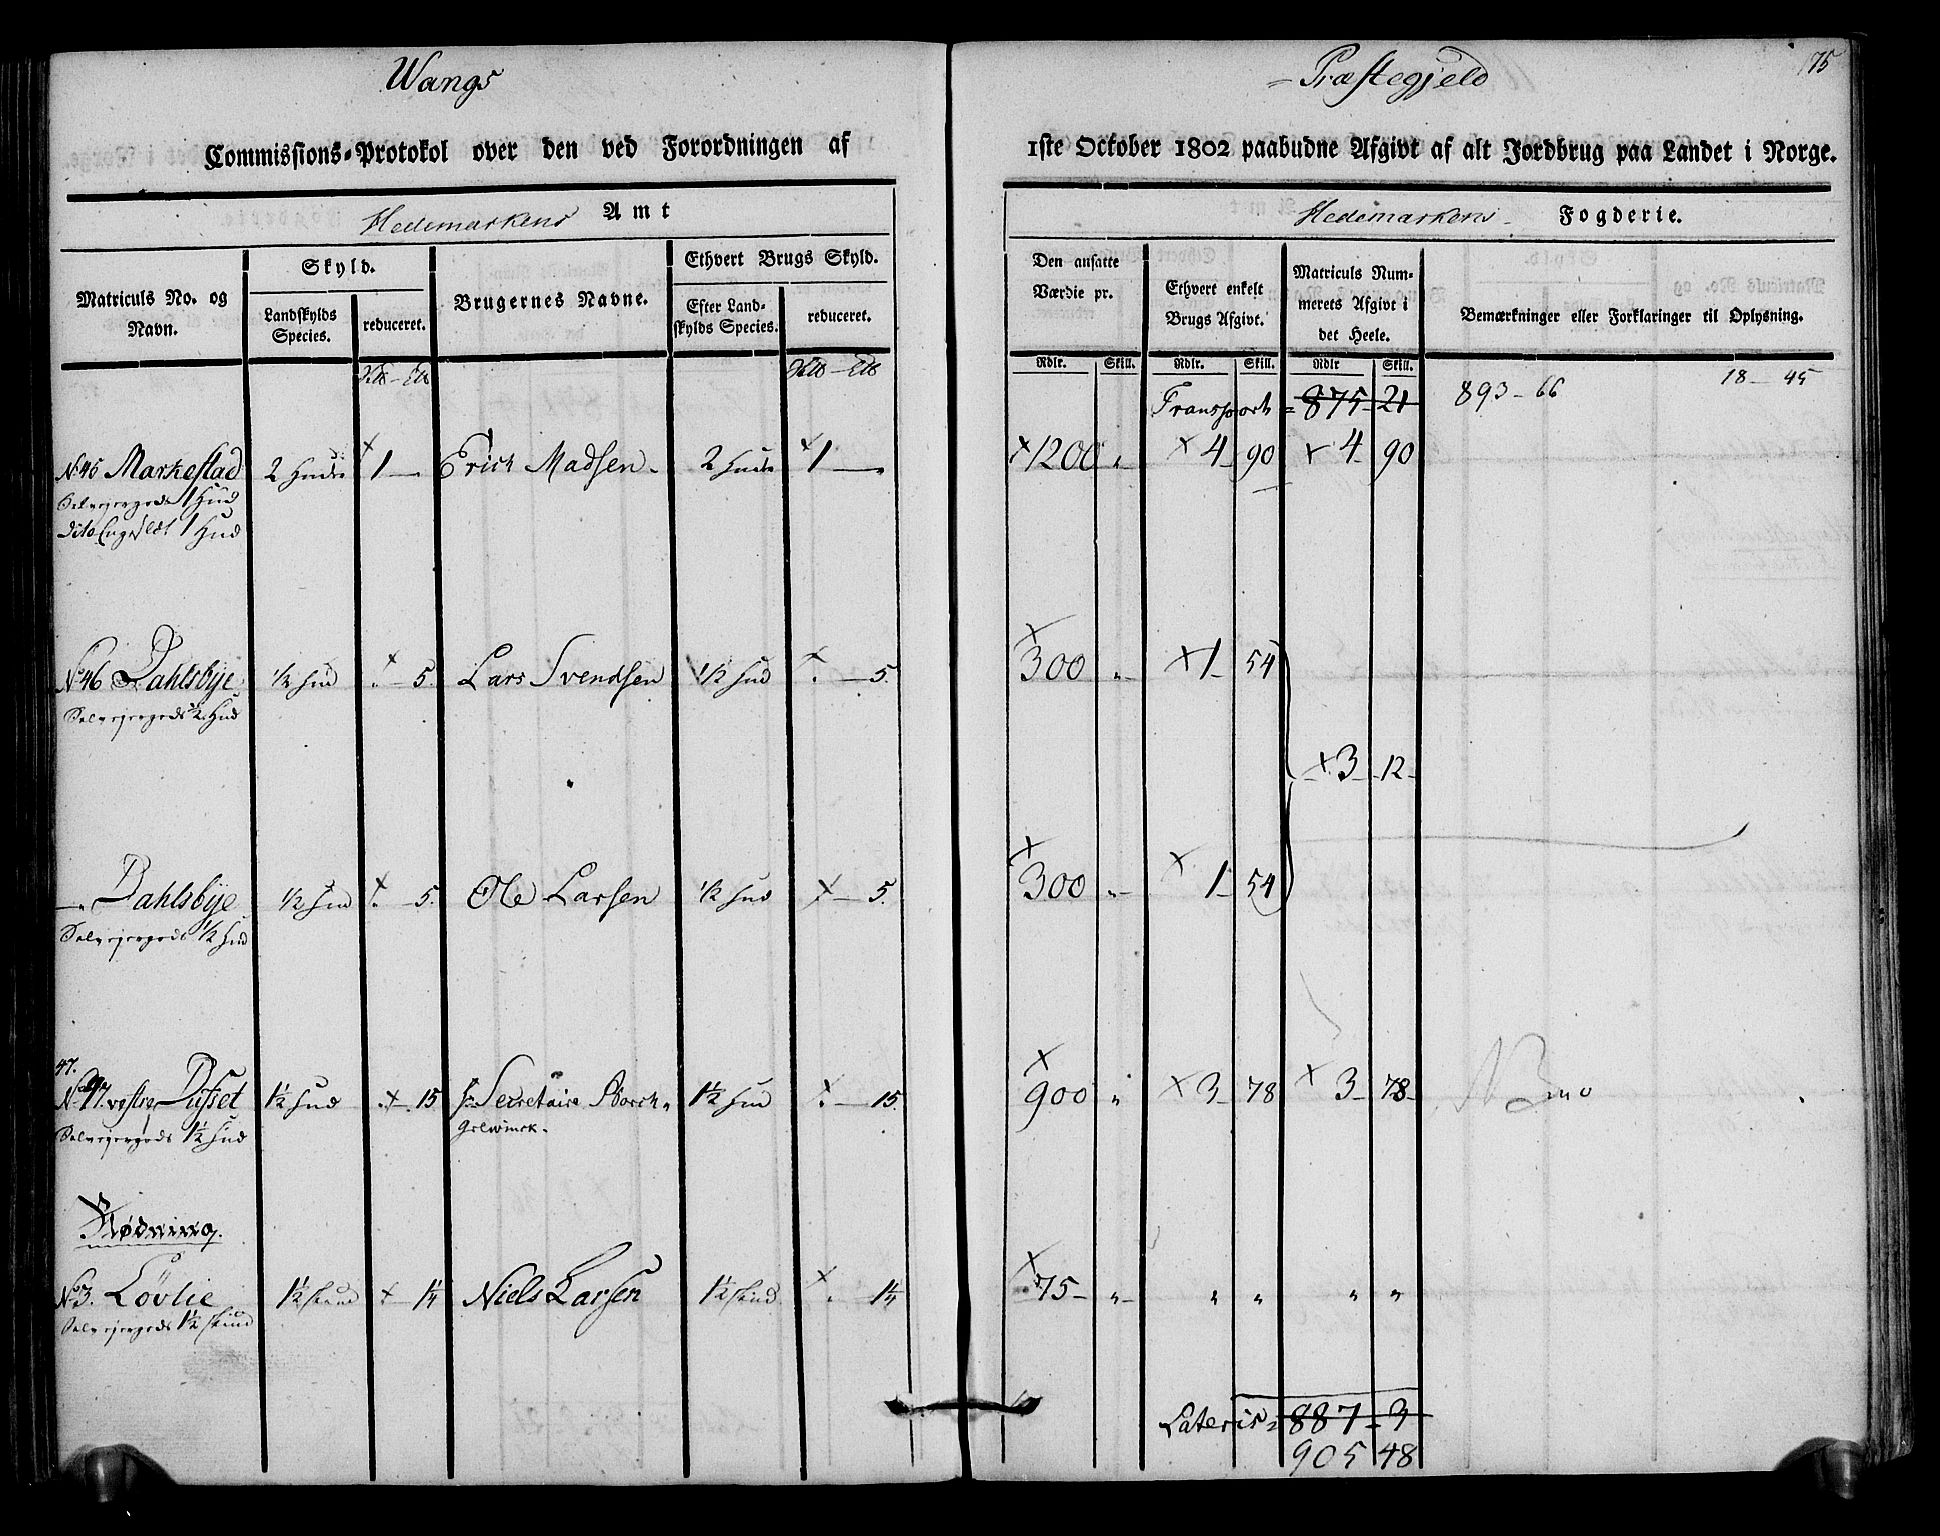 Wangs
Præstegjeld
75
Commissions-Protokol over den ved Forordningen af 1ste October 1802 paabudne Afgivt af alt Jordbrug paa Landet i Norge.
Hedemarkens Amt
Hedemarkens Fogderie.
Matriculs No. og Navn.
Skyld.
Landskylds Species.
reduceret.
Brugernes Navne.
Ethvert Brugs Skyld.
Efter Landskylds Species.
reduceret.
Den ansatte Værdie pr.
Ethvert enkelt Brugs Afgivt.
Matriculs Nummerets Afgivt i det Heele.
Bemærkninger eller Forklaringer til Oplysning.
Rdlr. Skill. Rdlr. Skill. Rdlr Skill.
Transport 875 - 21 893 - 66 18 - 45
No 45 Markestad 2 Huder 1 — Erich Madsen. 2 Huder 1 — 1200 „ 4 - 90 4 90
Selvejergods 1 Hud
dito 1 Hud
No 46 Dahlsbye 1/2 Hud „ - 5. Lars Svendsen 1/2 Hud „ - 5. 300 „ 1 - 54
Selvejergods 1/2 Hud
3 - 12
— „ Dahlsbye 1/2 Hud „ - 5. Ole Larsen 1/2 Hud - 5. 300 „ 1 - 54
Selvejergods 1/2 Hud
47.
No 47 vestre Dufset 1 1/2 Hud „ - 15 Hr Secretaire 1 1/2 Hud „ - 15. 900 „ 3 - 78 3 - 78
Selvejergods 1 1/2 Hud
Rødning.
No 3. Lövlie 1 1/2 Skind - 1 1/4 Niels Larsen 1 1/2 Skind „ - 1 1/4 75 - „ „ „ „ „
Selvejergods 1 1/2 Skind
Lateris 887 - 3
905 48